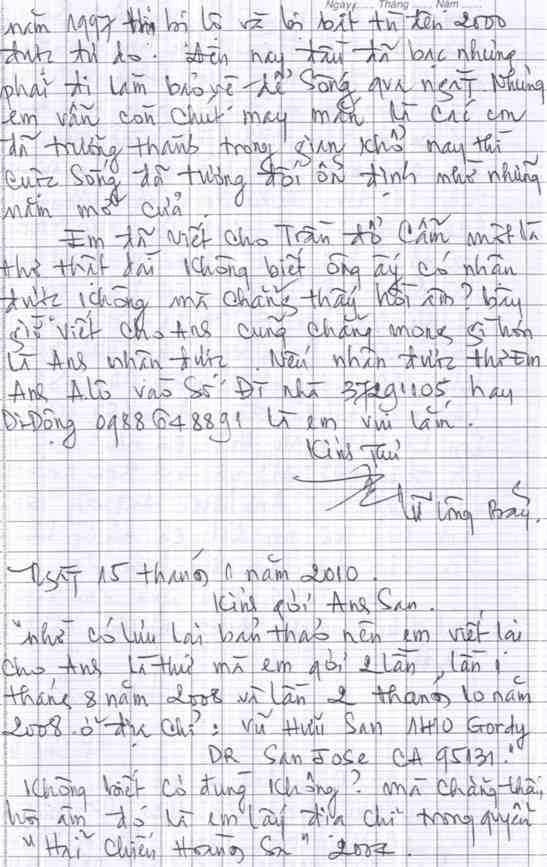 Ngày..... Tháng ..... Năm .....
năm 1997 thì bị lộ và bị bắt tù đến 2000
được tự do. Đến nay đầu đã bạc nhưng
phải đi làm bảo vệ để sống qua ngày. Nhưng
em vẫn còn chút may mắn là các con
đã trưởng thành trong gian khổ nay thì
cuộc sống đã tương đối ổn định nhờ những
năm mở cửa
Em đã viết cho Trần Đỗ Cẩm một lá
thư thật dài không biết ông ấy có nhận
được không mà chẳng thấy hồi âm? bây
giờ viết cho Anh cũng chẳng mong gì hơn
là Anh nhận được. Nếu nhận được thư Em
Anh Alô vào Số ĐT nhà 37291105 hay
Di-Động 0988648891 là em vui lắm.
Kính Thư
Lữ Công Bảy.
Ngày 15 tháng 1 năm 2010.
Kính gởi Anh San.
"nhờ có lưu lại bản thảo nên em viết lại
cho Anh lá thư mà em gởi 2 lần, lần 1
tháng 8 năm 2008 và lần 2 tháng 10 năm
2008 ở địa chỉ: Vũ Hữu San 1440 Gordy
DR San Jose CA 95131."
Không biết có đúng không? mà chẳng thấy
hồi âm đó là em lấy địa chỉ trong quyển
"Hải Chiến Hoàng Sa" 2004.